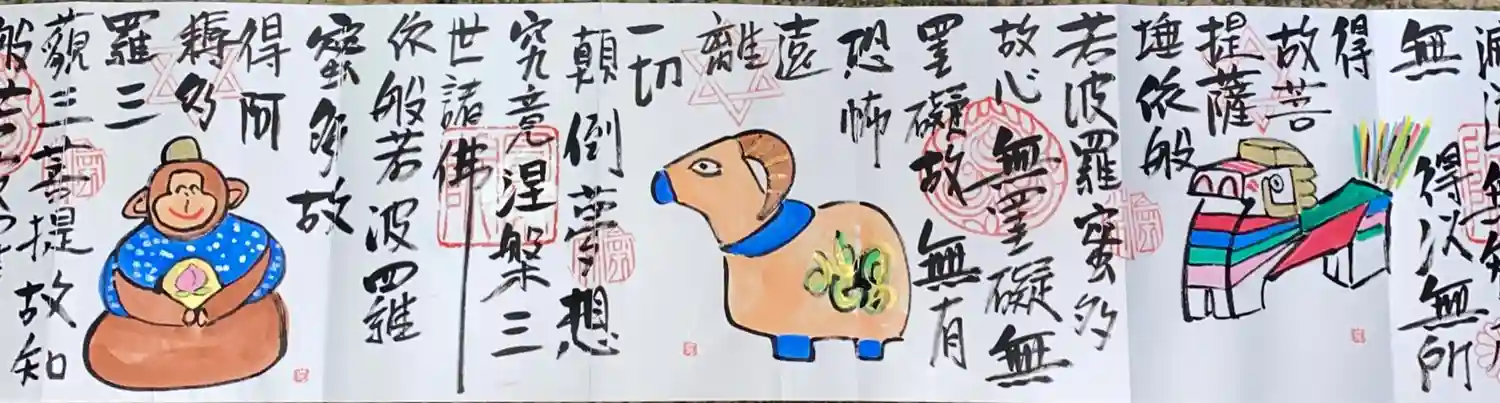 無得以無所
得
故菩
提薩
埵依般
若波羅蜜多
故心無罣礙無
罣礙故無有
恐怖
遠
離
一切
顛倒夢想
究竟涅槃三
世諸佛
依般若波羅
蜜多故
得阿
耨多
羅三
藐三菩提故知
般若波